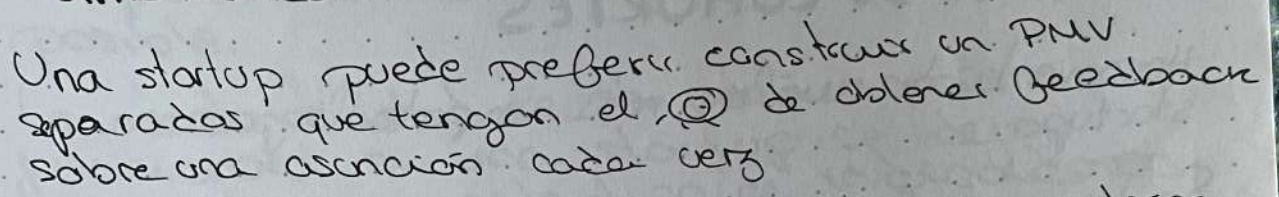 Una startup puede preferir construir un PMV
separadas que tengan el de obtener feedback
sobre una asunción cada verz